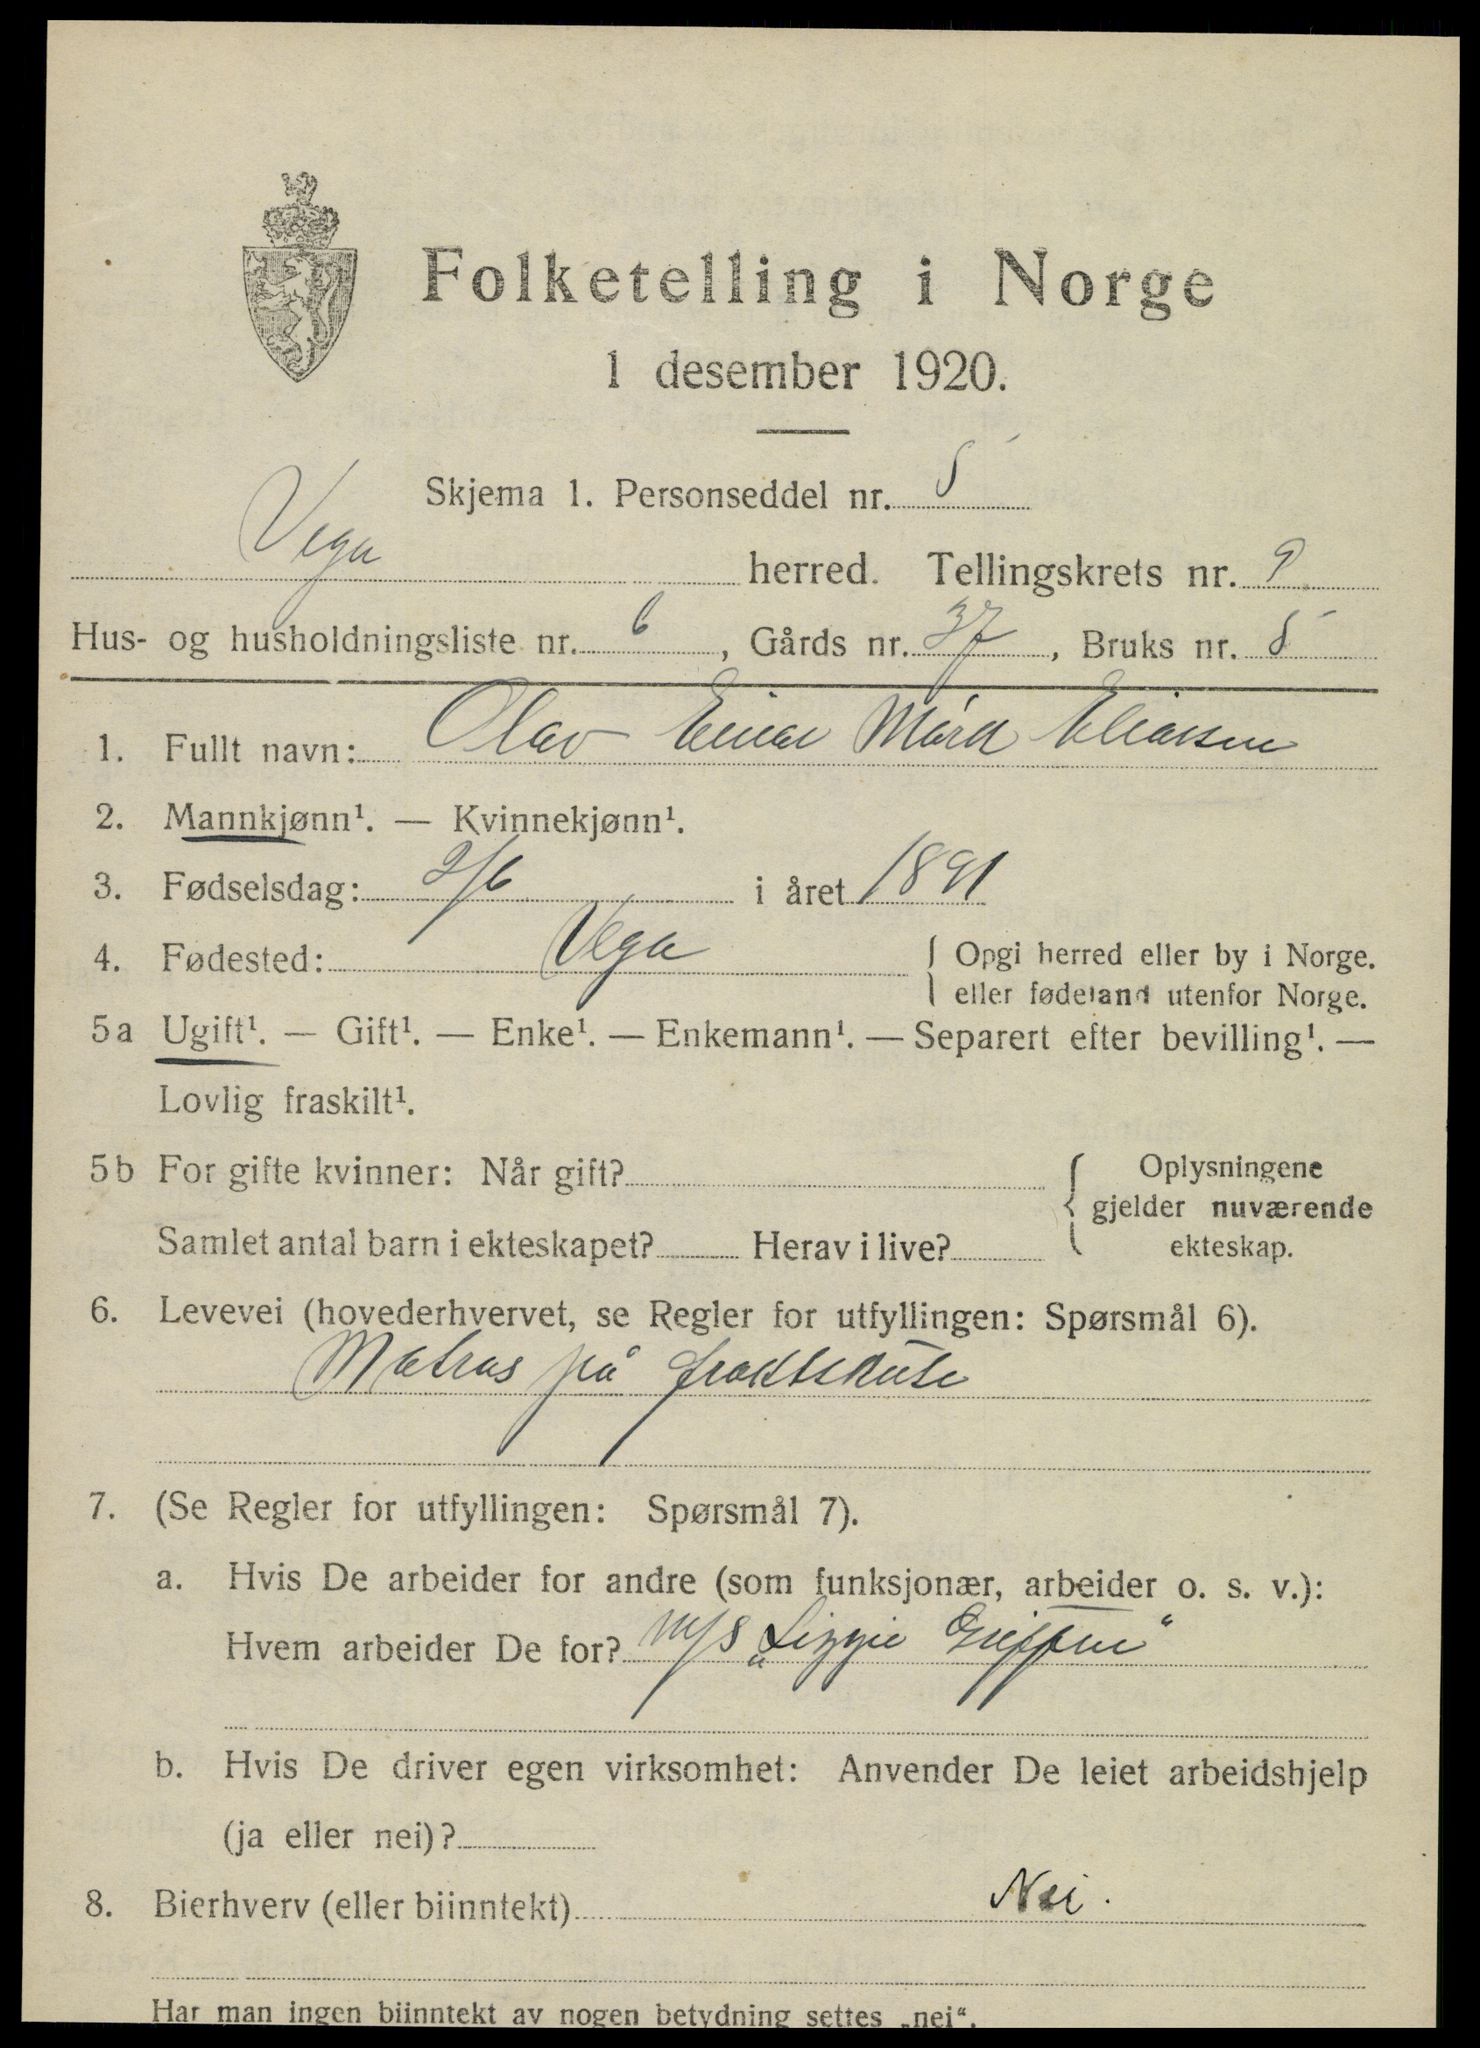 Folketelling i Norge
1 desember 1920.
Skjema 1. Personseddel nr. 5
Vega herred. Tellingskrets nr. 9
Hus- og husholdningsliste nr. 6, Gårds nr. 37, Bruks nr. 5
1. Fullt navn: Olav Einar Mörch Eliassen
2. Mannkjønn¹. — Kvinnekjønn¹.
3. Fødselsdag: 2/6 i året 1891
4. Fødested: Vega { Opgi herred eller by i Norge.
eller fødeland utenfor Norge.
5a Ugift¹. — Gift¹. — Enke¹. — Enkemann¹. — Separert efter bevilling¹. —
Lovlig fraskilt¹.
5b For gifte kvinner: Når gift? { Oplysningene
gjelder nuværende
Samlet antal barn i ekteskapet? Herav i live? ekteskap.
6. Levevei (hovederhvervet, se Regler for utfyllingen: Spørsmål 6).
Matros på fraktskute
7. (Se Regler for utfyllingen: Spørsmål 7).
a. Hvis De arbeider for andre (som funksjonær, arbeider o. s. v.):
Hvem arbeider De for? M/S „Lizzie
b. Hvis De driver egen virksomhet: Anvender De leiet arbeidshjelp
(ja eller nei)?
8. Bierhverv (eller biinntekt) Nei.
Har man ingen biinntekt av nogen betydning settes „nei“.